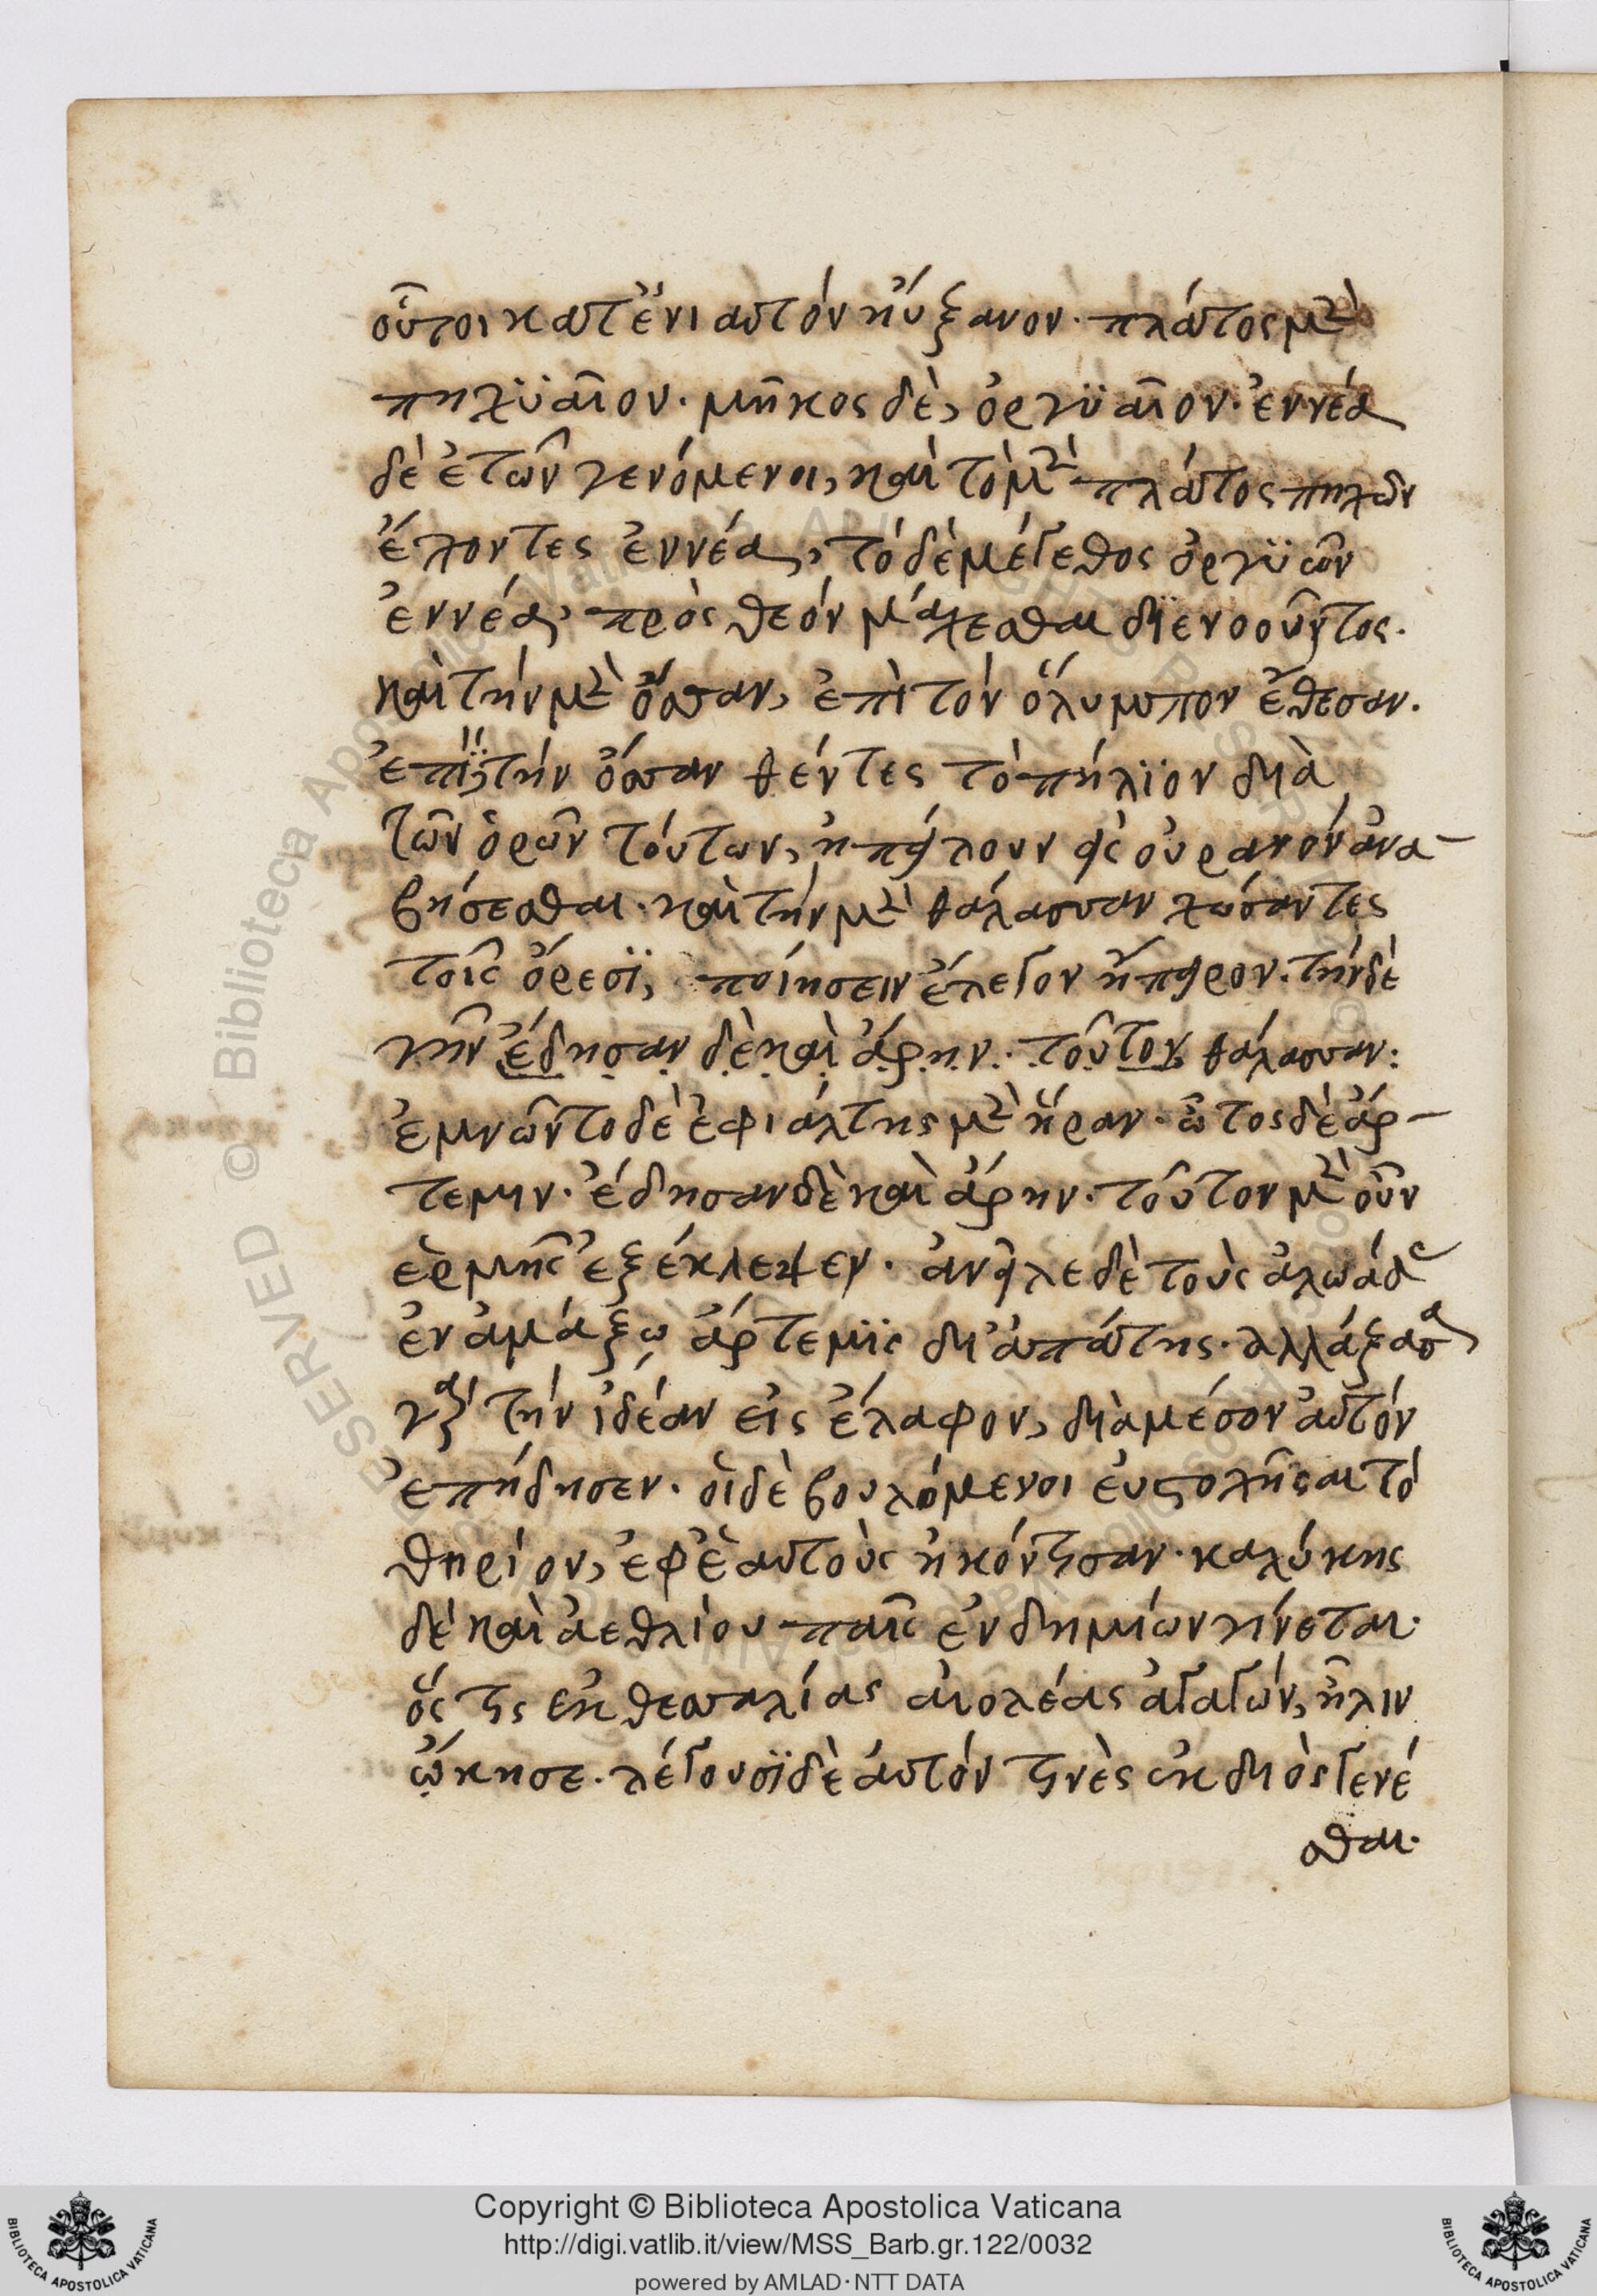 οὗτοι κατ ἐνιαυτόν ηὔξανον· πλάτος μὲν
πηχϋαῖον· μῆκος δὲ, ὀργϋαῖον· ἐννέα
δὲ ἐτῶν γενόμενοι, καὶ τὸ μὲν πλάτος πηχῶν
ἔχοντες ἐννέα, τὸ δὲ μέγεθος ὀργϋιῶν
ἐννέα, πρὸς θεόν μάχεσθαι διενοοῦντο.
καὶ τὴν μὲν ὄσσαν, ἐπὶ τὸν ὄλυμπον ἔθεσαν.
ἐπὶ τὴν ὄσσαν θέντες τὸ πήλϊον διὰ
τῶν ὀρῶν τούτων, ἠπείλουν εἰς οὐρανόν ἀνα-
βήσεσθαι· καὶ τὴν μὲν θάλασσαν χώσαντες
τοῖς ὄρεσϊ, ποιήσειν ἔλεγον ἤπειρον· τὴν δὲ
γῆν ἔδησαν δὲ καὶ ἄρην· τοῦτον θάλασσαν:
ἐμνῶντο δὲ ἐφιάλτης μὲν ἥραν· ὦτος δὲ ἄρ-
τεμιν· ἔδησαν δὲ καὶ ἄρην· τοῦτον μὲν οὖν
ἑρμῆς ἐξέκλεψεν· ἀνεῖλε δὲ τοὺς ἀλωάδας
ἐν ἁμάξῳ ἄρτεμϊς δι' ἀπάτης· ἀλλάξασα
γὰρ τὴν ἰδέαν εἰς ἔλαφον, διὰ μέσον αὐτόν
ἐπήδησεν· οἱ δὲ βουλόμενοι εὐστοχῆσαι τὸ
θηρίον, ἐφ ἑαυτοὺς ἠκόντισαν· καλύκης
δὲ καὶ ἀεθλίου παῖς ἐνδημίων γίνεται·
ὅς τις ἐκ θεσσαλίας αἰολέας ἀγαγών, ἦλιν
ᾤκησε· λέγουσϊ δὲ ἀυτόν τινὲς ἐκ διὸς γενέ
σθαι·
Copyright © Biblioteca Apostolica Vaticana
http://digi.vatlib.it/view/MSS_Barb.gr.122/0032
powered by AMLAD·NTT DATA
BIBLIOTECA APOSTOLICA VATICANA
BIBLIOTECA APOSTOLICA VATICANA